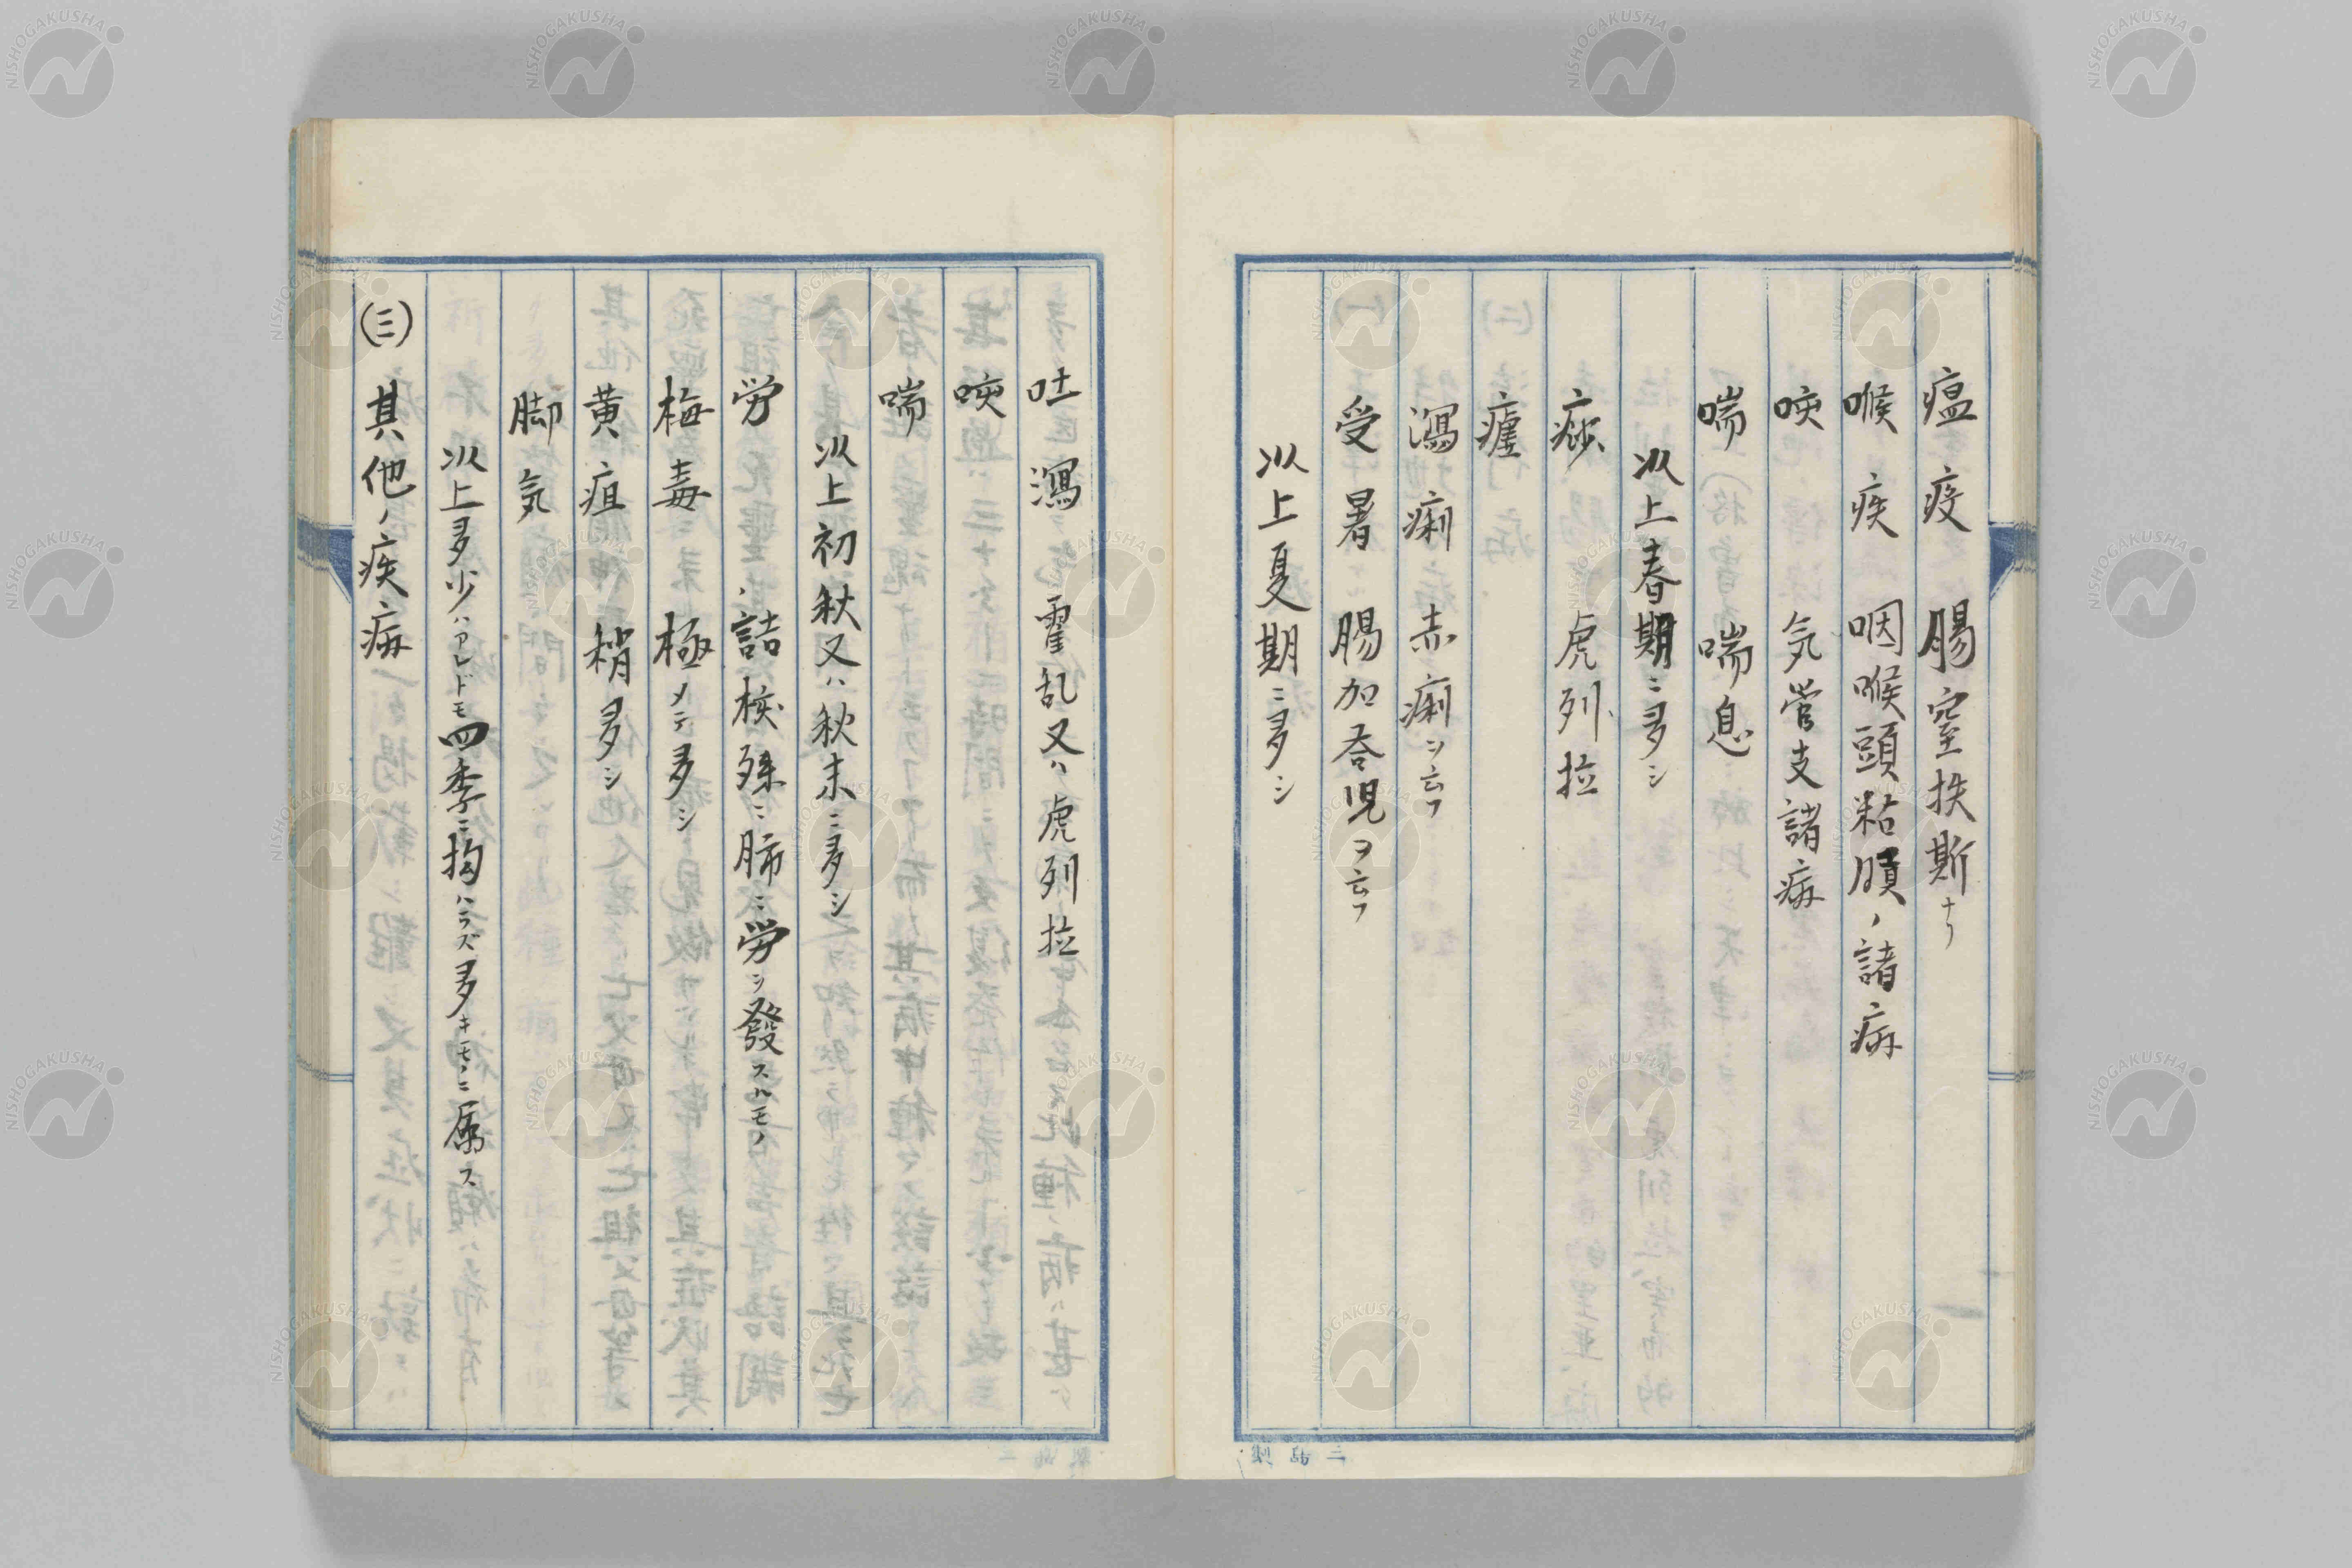 瘟疫　腸窒扶斯ナリ
喉疾　咽喉頭粘膜ノ諸病
咳　気管支諸病
喘　喘息
以上春期ニ多シ
痧　虎列拉
瘧
瀉痢　赤痢ヲ云フ
受暑　腸加答児ヲ云フ
以上夏期ニ多シ
吐瀉　霍乱又ハ虎列拉
咳
喘
以上初秋又ハ秋末ニ多シ
労　、詰核殊ニ肺ニ労ヲ發スルモノ
梅毒　極メテ多シ
黄疸　稍多シ
脚気
以上多少ハアレドモ四季ニ拘ハラズ多キモノニ属ス
(三)　其他ノ疾病
NISHOGAKUSHA